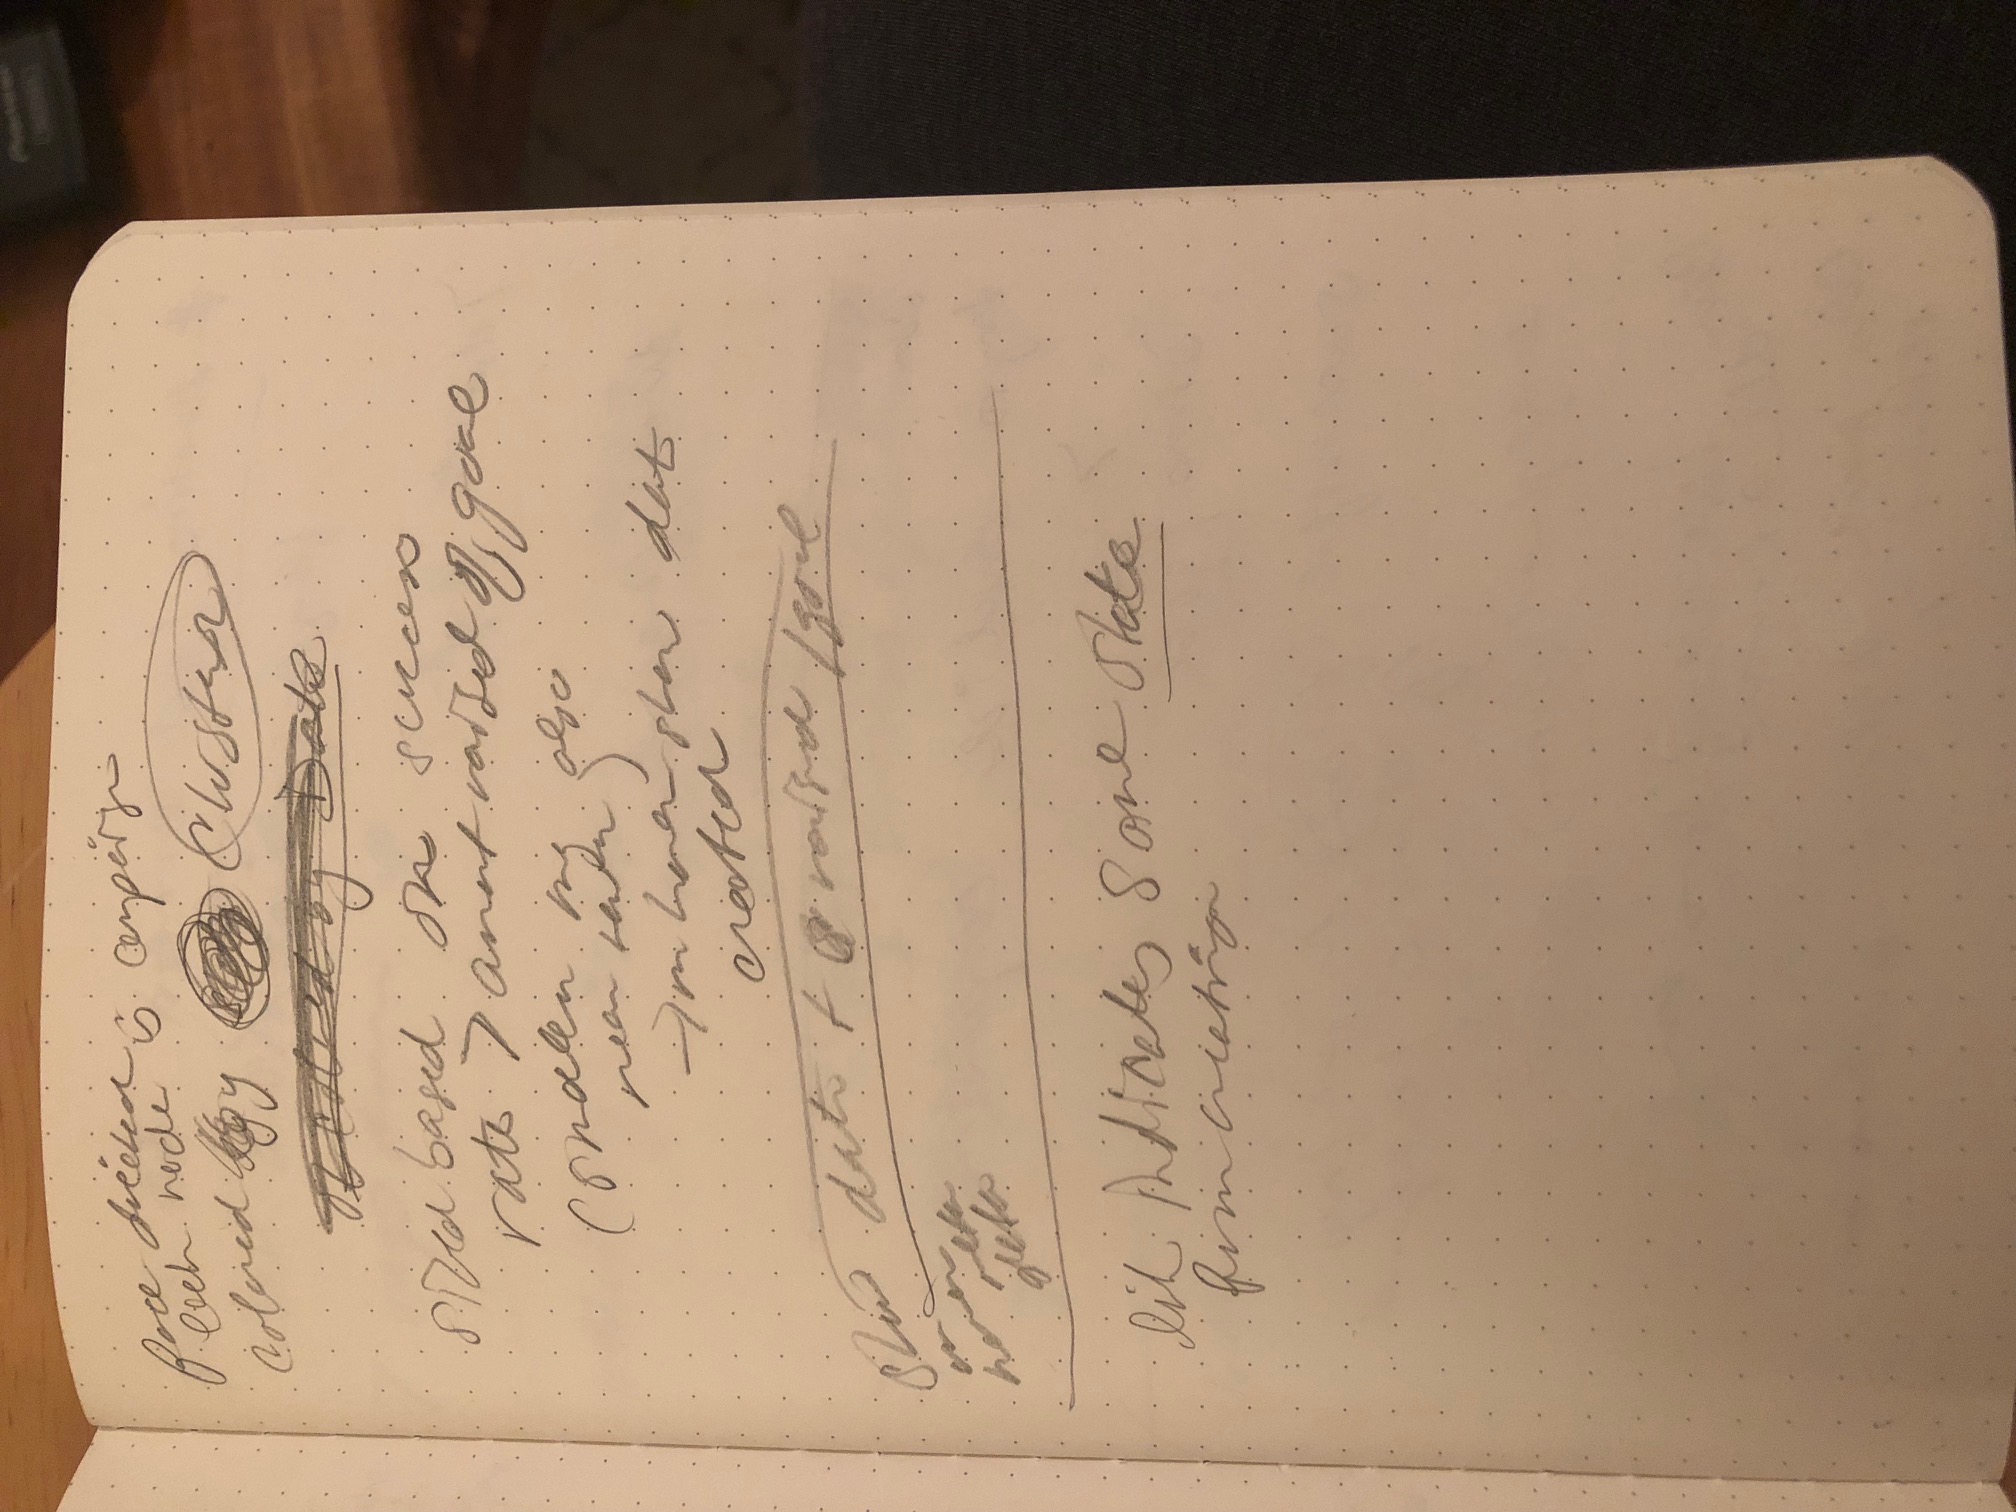 Force directed
each node is campaign
colored by Cluster
or colored by Date
sized based on success
rate > amnt raised of goal
(smaller may also
near center)
→ on hover show date
created
Show date + $ raised / goal
on
hover meta
data
link indicates same state
from creation